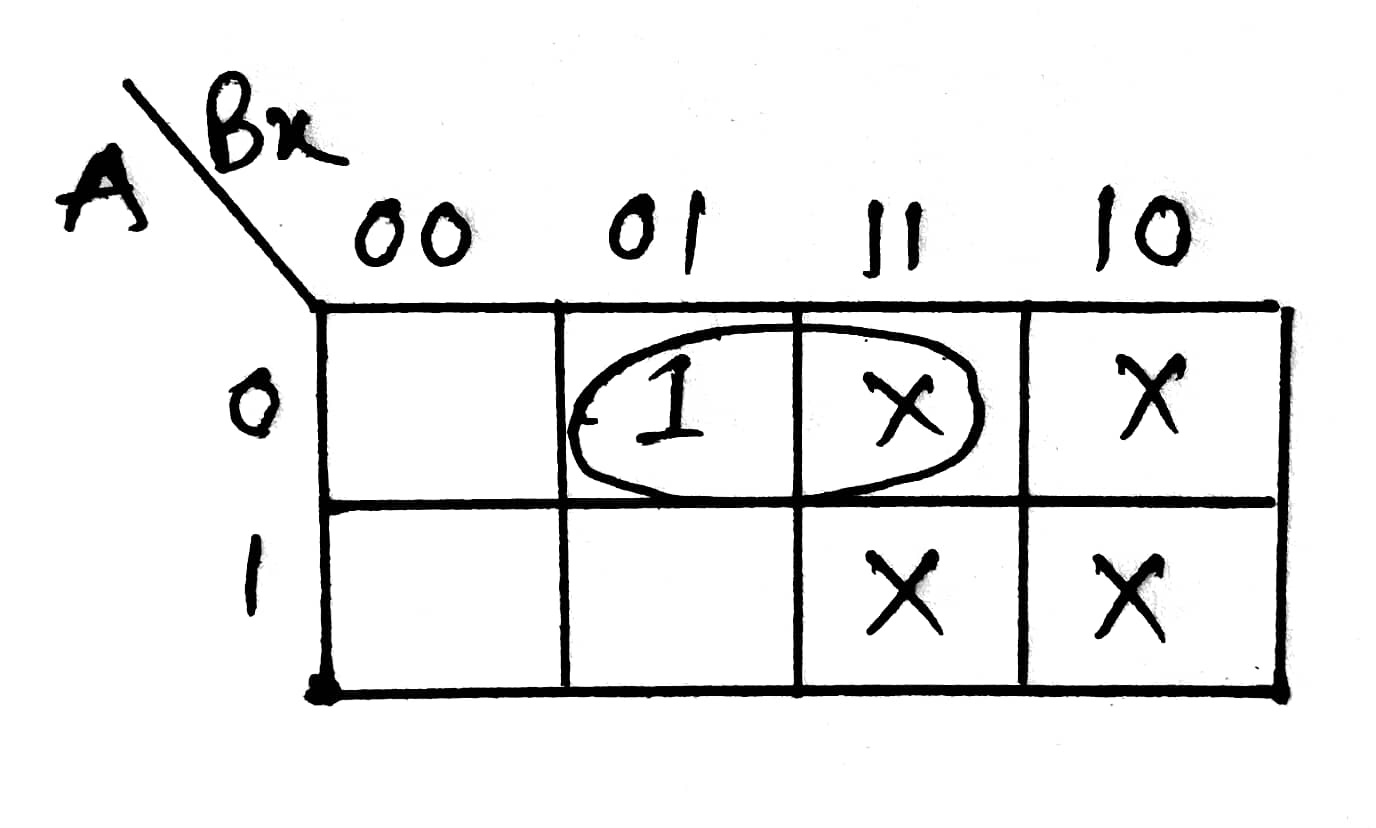 A Bx
00 01 11 10
0 1 X X
1 X X